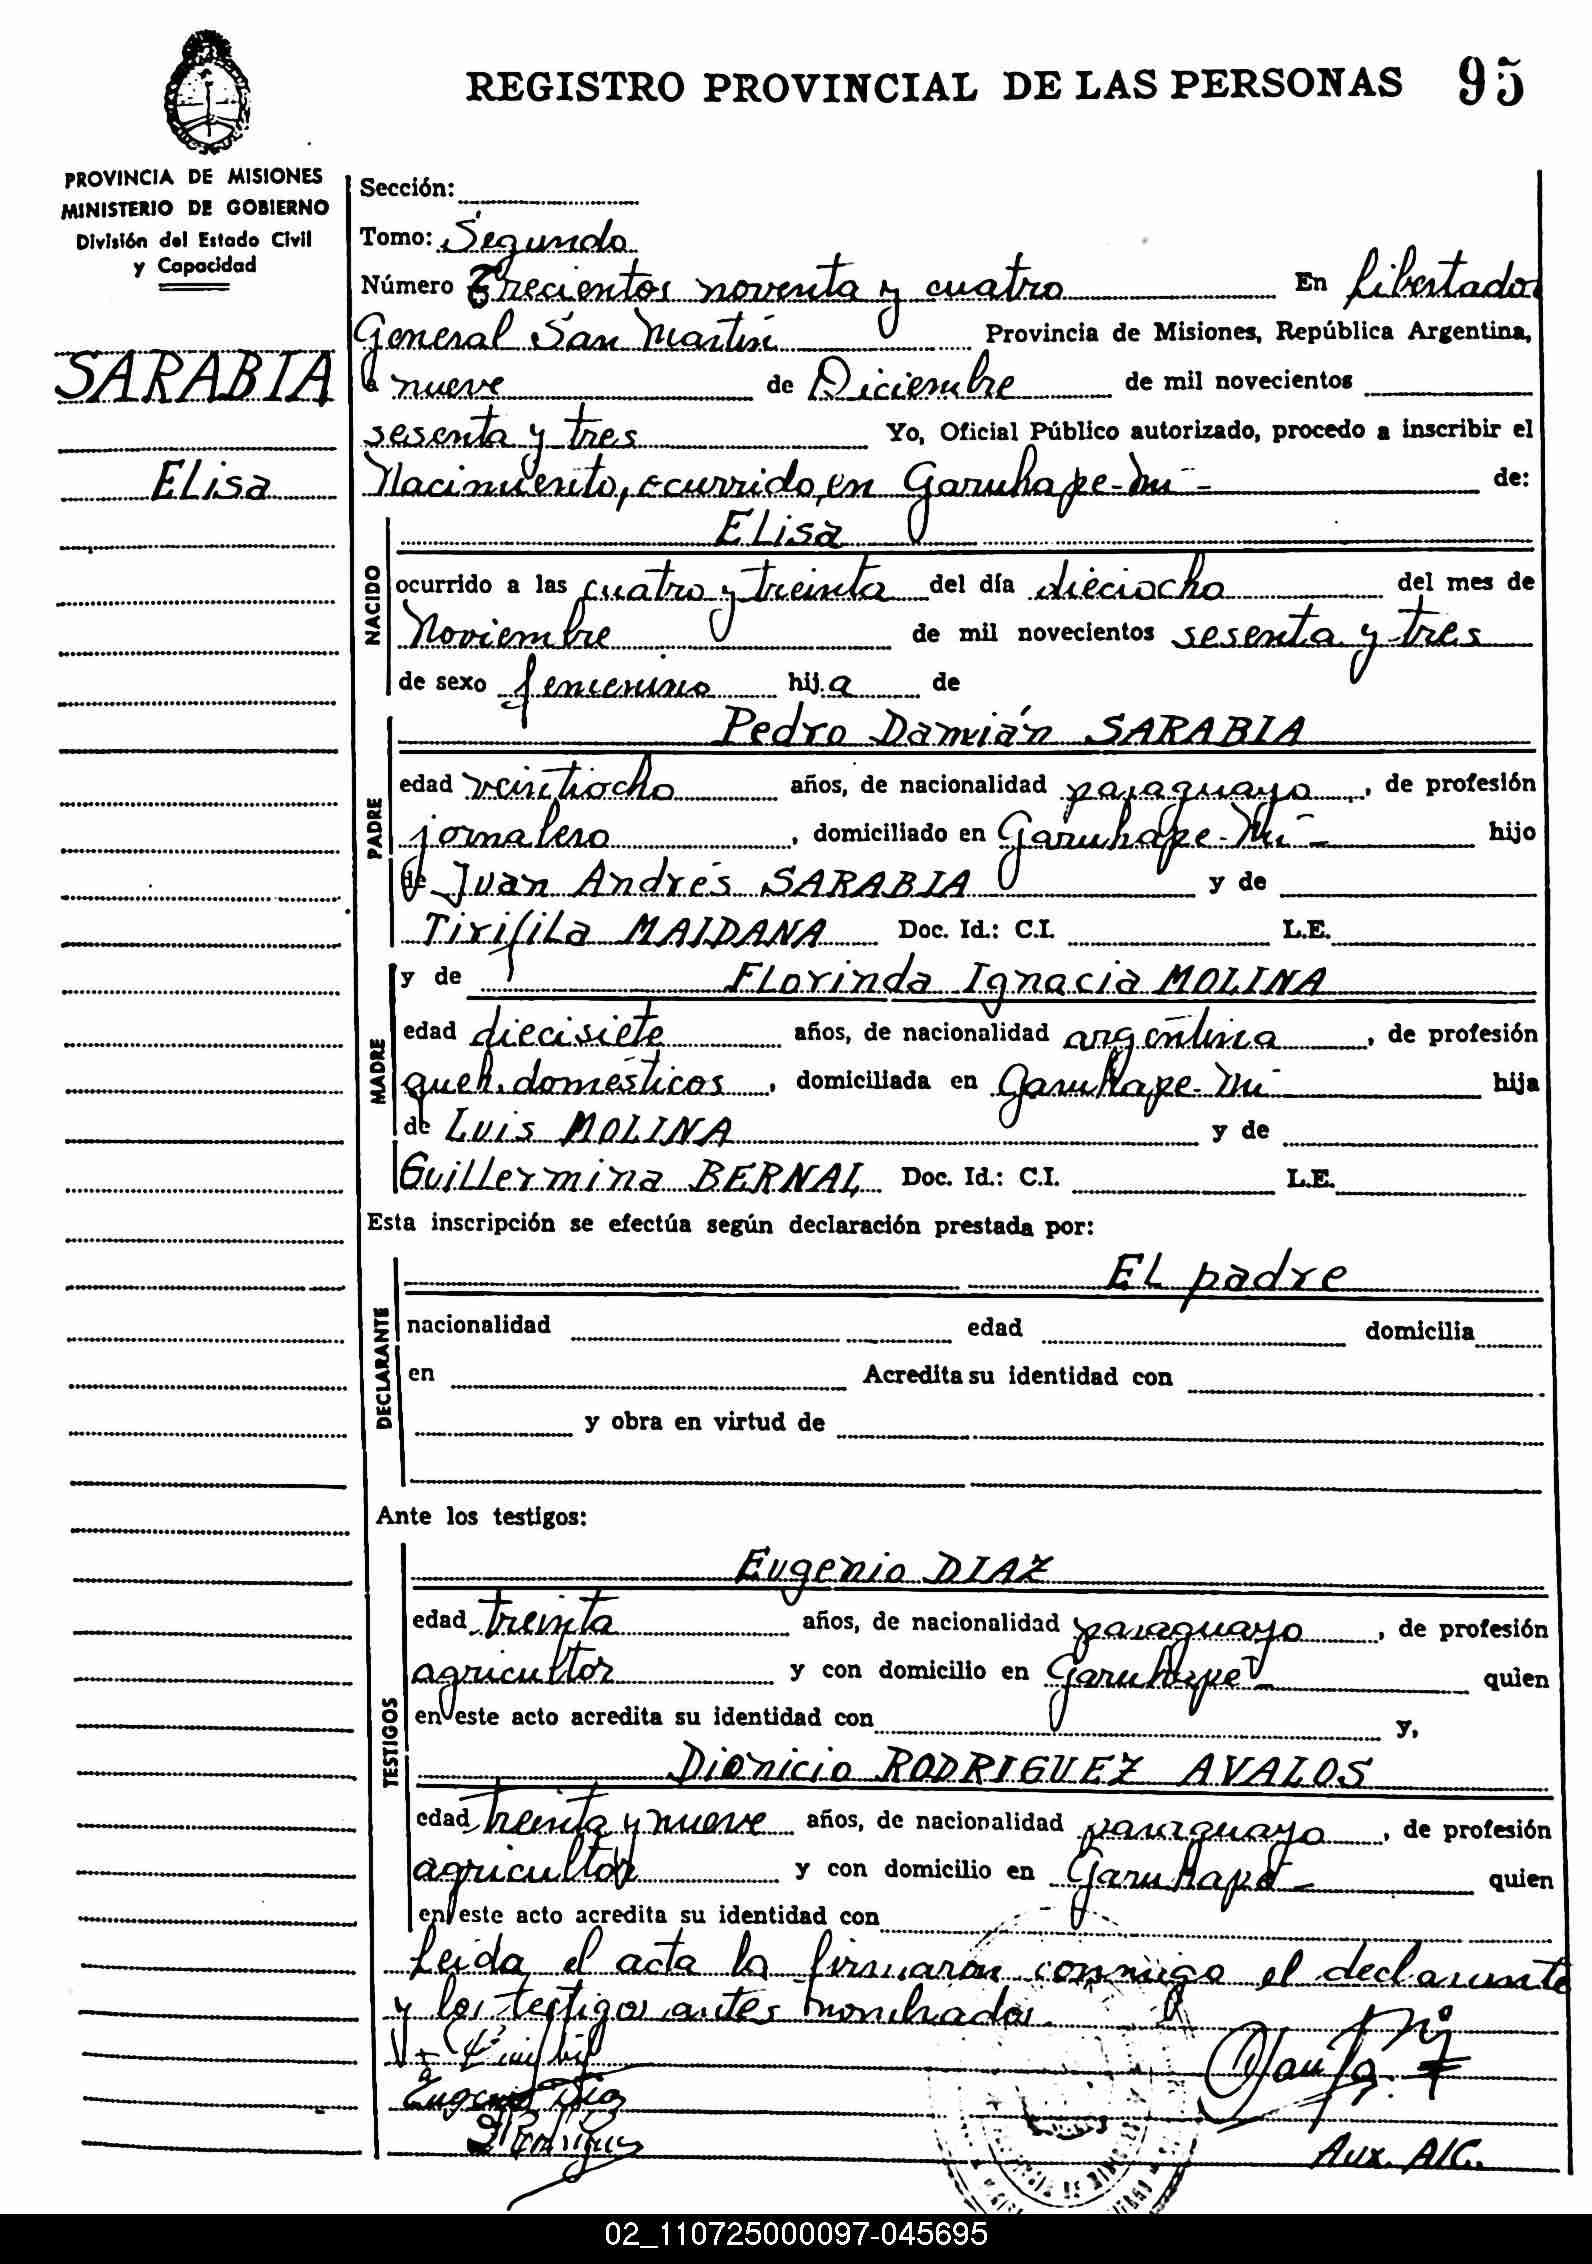 REGISTRO PROVINCIAL DE LAS PERSONAS 95
PROVINCIA DE MISIONES
MINISTERIO DE GOBIERNO
División del Estado Civil
y Capacidad
SARABIA
ELisa
Sección:
Tomo: Segundo
Número Trecientos noventa y cuatro En Libertador
General San Martín Provincia de Misiones, República Argentina,
a nueve de Diciembre de mil novecientos
sesenta y tres Yo, Oficial Público autorizado, procedo a inscribir el
Nacimiento, ocurrido, en Garuhape-mi- de:
NACIDO
ELisa
ocurrido a las cuatro y treinta del día dieciocho del mes de
Noviembre de mil novecientos sesenta y tres
de sexo femenino hija de
PADRE
Pedro Damián SARABIA
edad veintiocho años, de nacionalidad paraguayo, de profesión
jornalero, domiciliado en Garuhape-Mi- hijo
de Juan Andrés SARABIA y de
Tirifila MAIDANA Doc. Id.: C.I. L.E.
MADRE
y de FLorinda Ignacia MOLINA
edad diecisiete años, de nacionalidad argentina, de profesión
queh. domésticos, domiciliada en Garuhape-Mi hija
de Luis MOLINA y de
GuiLLermina BERNAL Doc. Id.: C.I. L.E.
Esta inscripción se efectúa según declaración prestada por:
DECLARANTE
EL padre
nacionalidad edad domicilia
en Acredita su identidad con
y obra en virtud de
Ante los testigos:
TESTIGOS
Eugenio DIAZ
edad treinta años, de nacionalidad paraguayo, de profesión
agricultor y con domicilio en Garuhape- quien
en este acto acredita su identidad con y,
Dionicio RODRIGUEZ AVALOS
edad treinta y nueve años, de nacionalidad paraguayo, de profesión
agricultor y con domicilio en Garuhapé- quien
en este acto acredita su identidad con
Leida el acta la firmaron conmigo el declarante
y los testigos antes nombrados.
Eugenio Diaz
D Rodriguez
Aux. A/C.
02_110725000097-045695